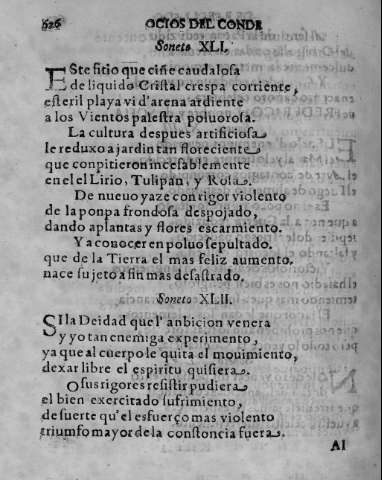 626 OCIOS DEL CONDE
Soneto XLI.
ESte sitio que ciñe caudalosa
de liquido Cristal crespa corriente,
esteril playa vi d'arena ardiente
a los Vientos palestra poluorosa.
La cultura despues artificiosa
le reduxo a jardin tan floreciente
que conpitieron incesablemente
en el el Lirio, Tulipan, y Rosa.
De nueuo yaze con rigor violento
de la ponpa frondosa despojado,
dando a plantas y flores escarmiento.
Y a conocer en poluo sepultado.
que de la Tierra el mas feliz aumento.
nace sujeto a fin mas desastrado.
Soneto XLII.
SI la Deidad que l' anbicion venera
y yo tan enemiga experimento,
ya que al cuerpo le quita el mouimiento,
dexar libre el espiritu quisiera.
O sus rigores resistir pudiera
el bien exercitado sufrimiento,
de suerte qu'el esfuerço mas violento
triumfo mayor de la constoncia fuera.
AI